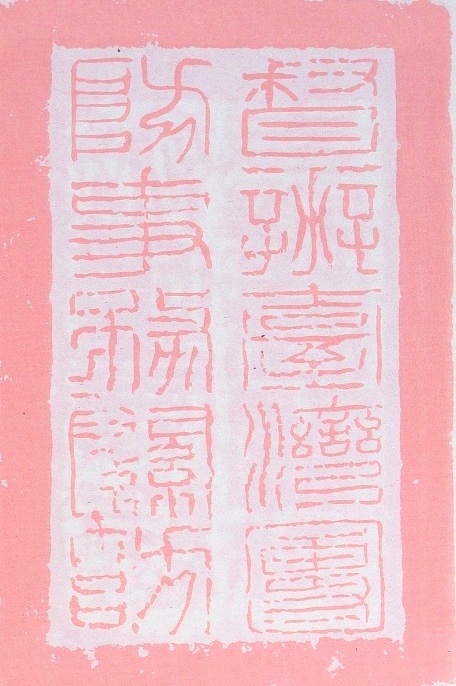 督辦臺灣團
防事務關防